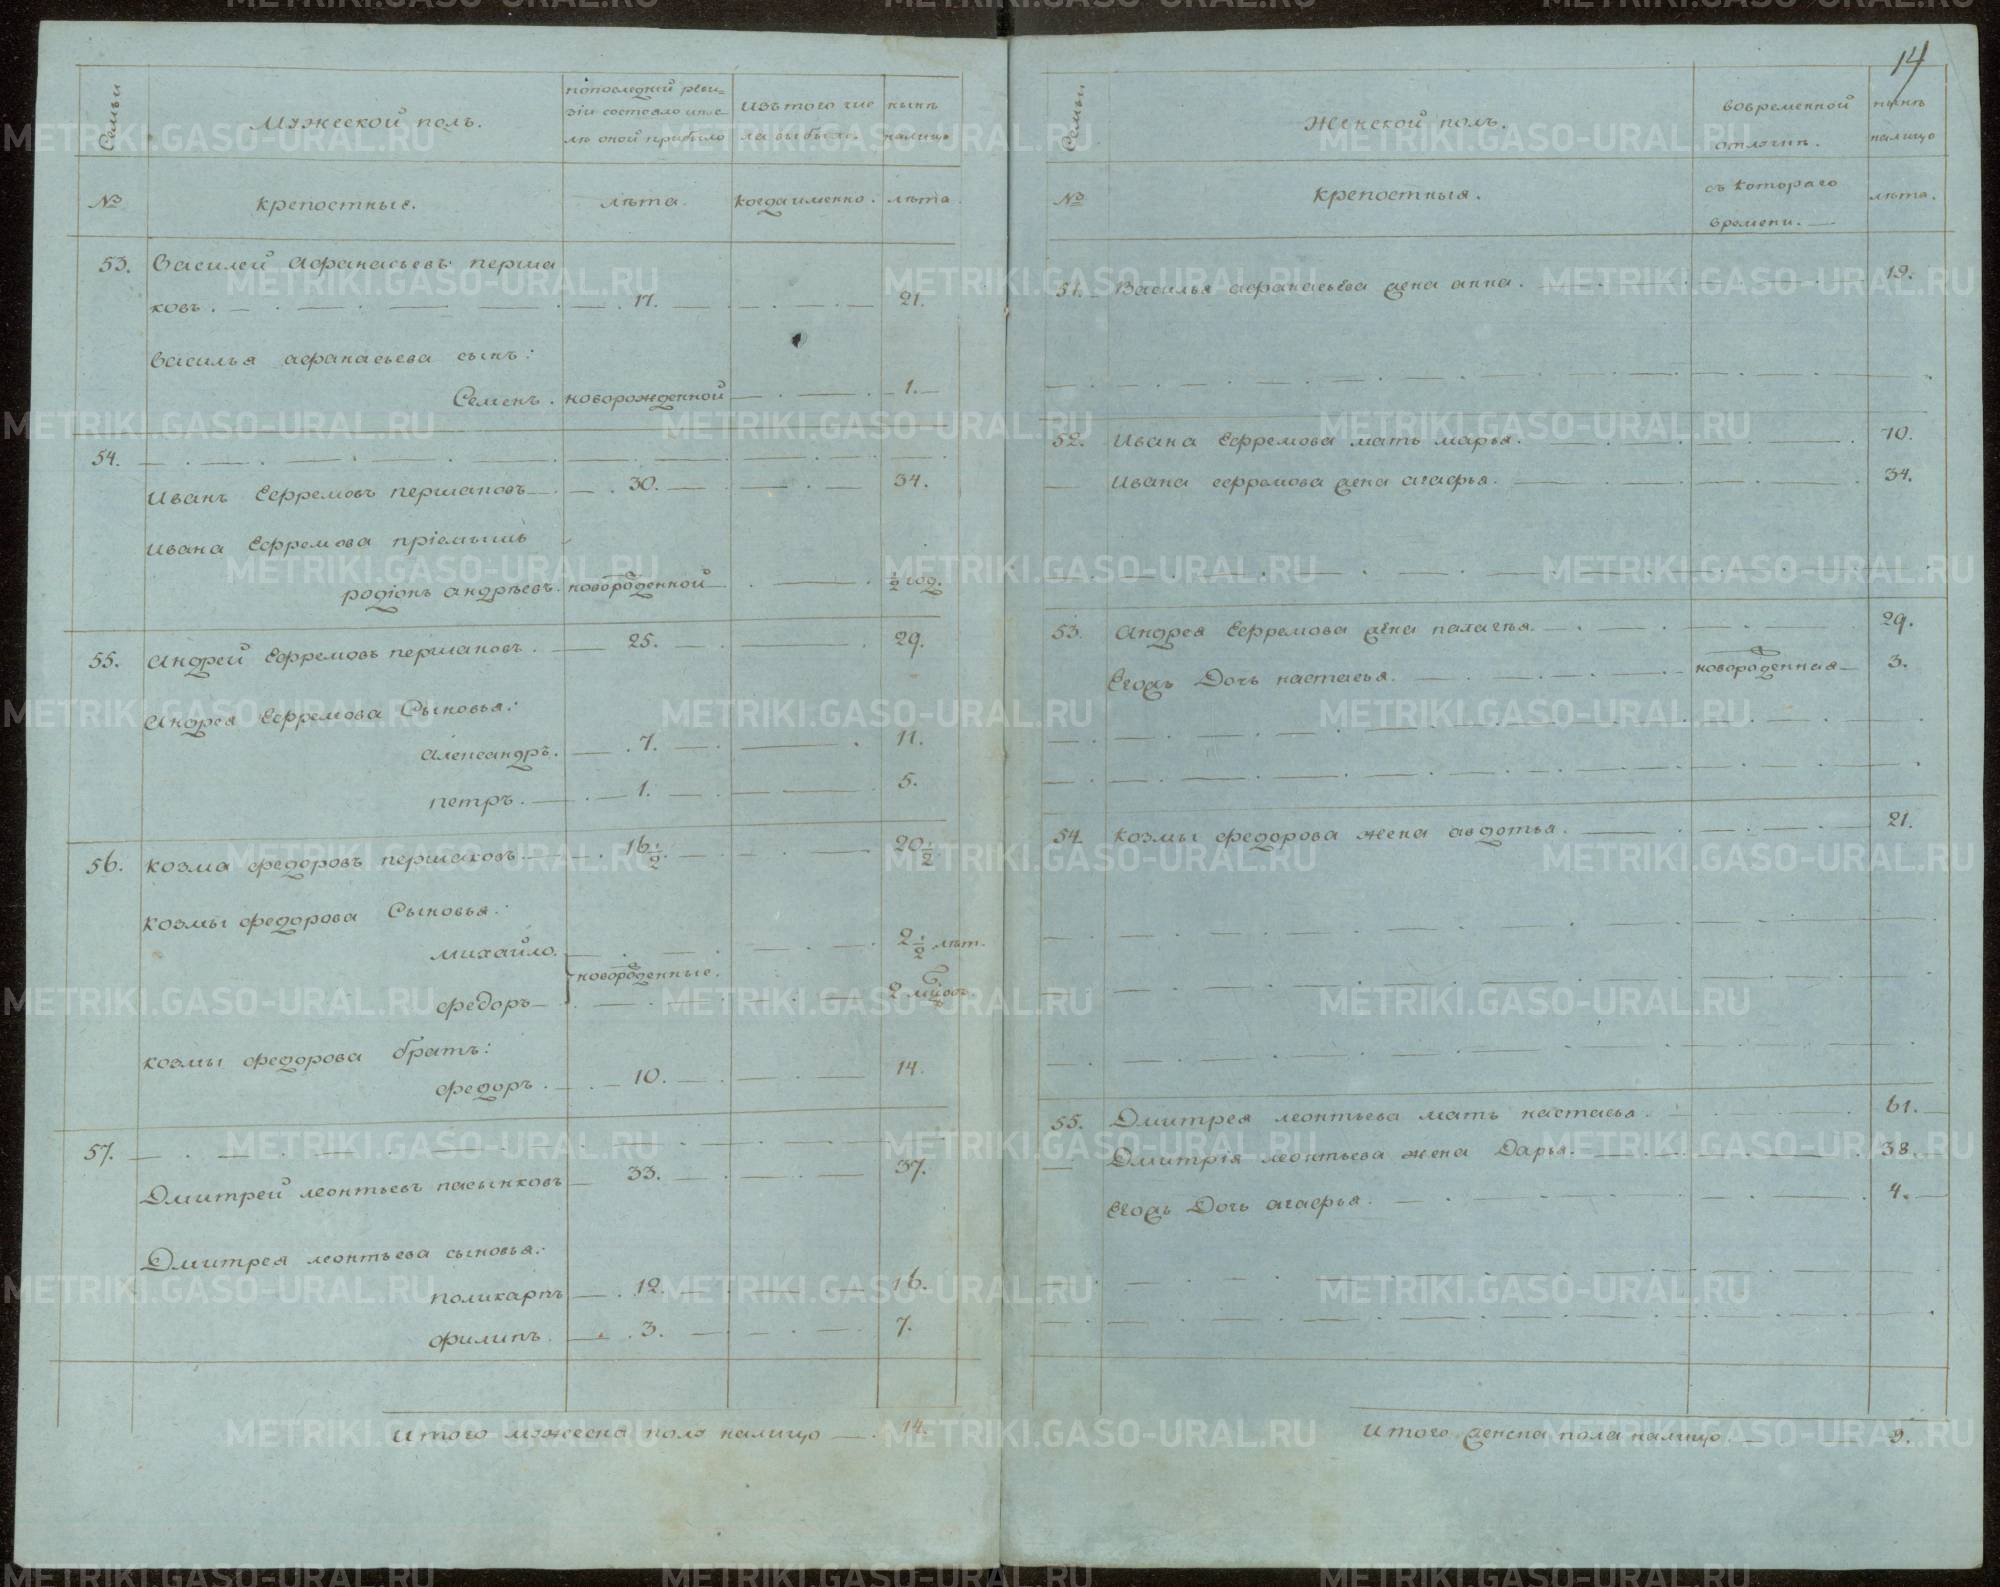 14
Семьи
Мужеской полъ.
попоследней реви=
зіи состояло ипос
лѣ оной прибыло
Изътого чис
ла выбыло.
нынѣ
налицо
№
крепостные.
лѣта.
когда именно.
лѣта.
53. Василей Афанасьевъ перша
ковъ. 17. 21.
Василья афанасьева сынъ:
Семенъ. новорожденной 1.
54.
Иванъ Ефремовъ першаковъ 30. 34.
Ивана Ефремова пріемышъ
родіонъ андрѣевъ. новорожденной ½ год.
55. Андрей Ефремовъ першаковъ. 25. 29.
Андрея Ефремова Сыновья:
александръ. 7. 11.
петръ. 1. 5.
56. козма федоровъ першаковъ 16½. 20½.
козмы федорова Сыновья:
михайло. 2½ лѣт.
новорожденные.
федоръ 2 мцовъ.
козмы федорова братъ:
федоръ. 10. 14.
57.
Дмитрей леонтьевъ пасынковъ 33. 37.
Дмитрея леонтьева сыновья:
поликарпъ 12. 16.
филипъ. 3. 7.
Итого мужеска пола налицо 14.
Семьи
Женской полъ.
вовременной
отлучкѣ.
нынѣ
налицо
№
крепостныя.
съ котораго
времени.
лѣта.
51. Василья афанасьева жена анна. 19.
52. Ивана Ефремова мать марья. 70.
Ивана ефремова жена агафья. 34.
53. Андрея Ефремова жена палагѣя. 29.
Егожъ Дочь настасья. новорожденная 3.
54. козмы федорова жена авдотья. 21.
55. Дмитрея леонтьева мать настасья. 61.
Дмитрія леонтьева жена Дарья. 38.
Егожъ Дочь агафья. 4.
Итого женска пола налицо 9.
METRIKI.GASO-URAL.RU